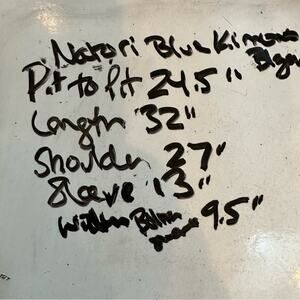 Natori Blue Kimono
Pit to Pit 24.5"
Length 32"
Shoulder 27"
Sleeve 13"
Width 9.5"